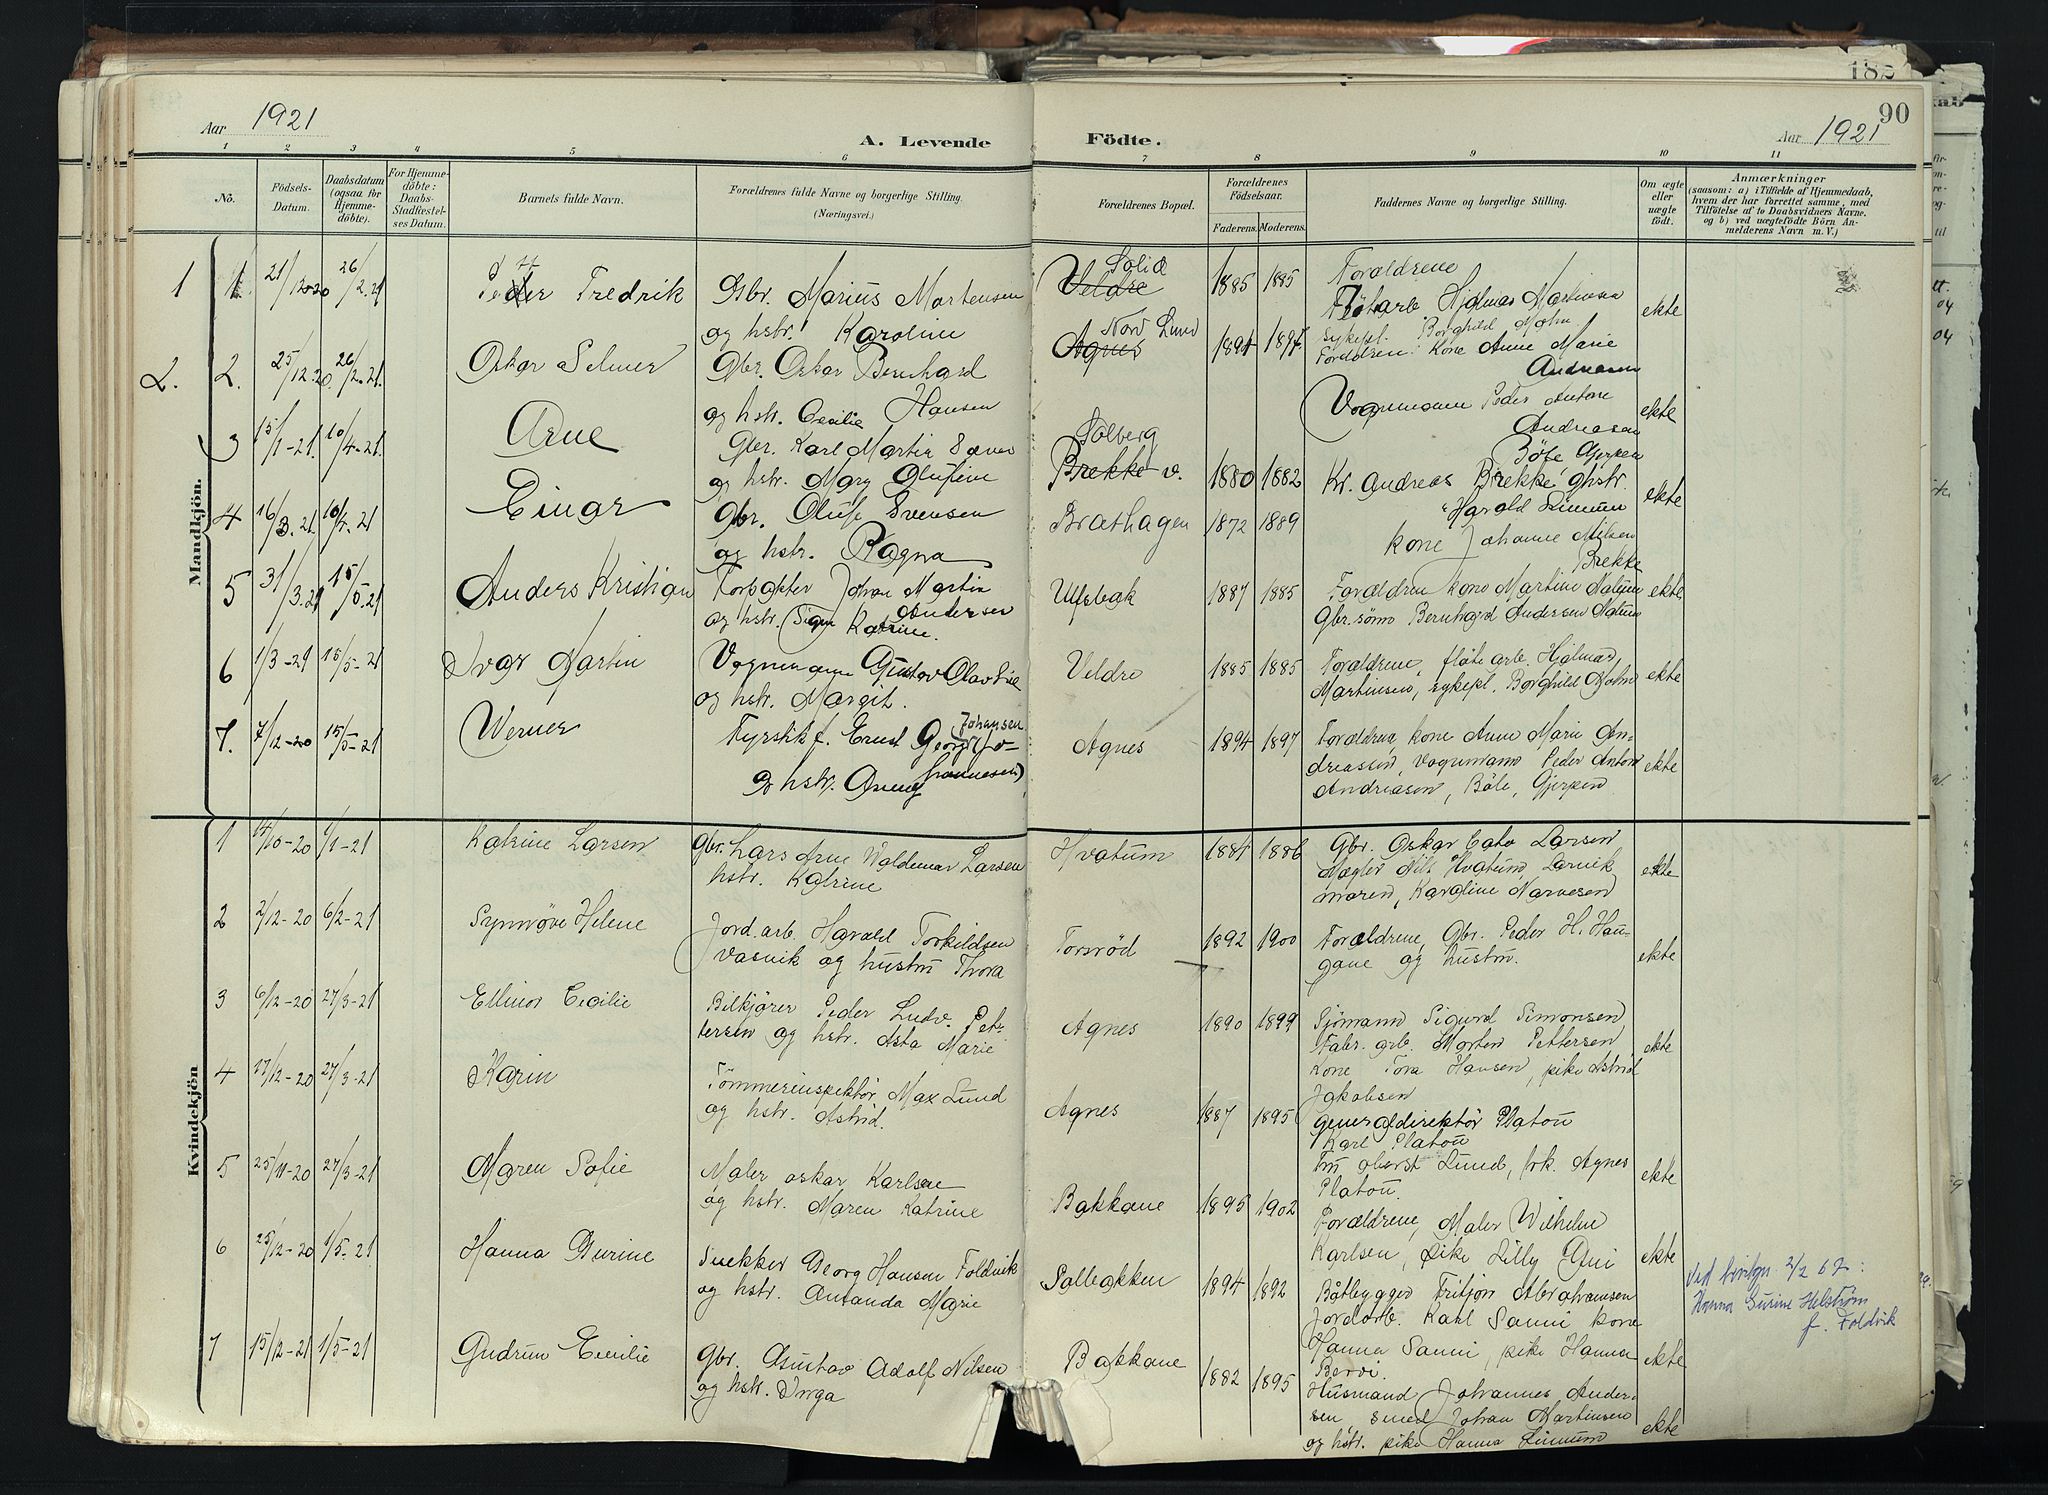 185
90
Aar 1921
A. Levende
Födte.
Aar 1921
1 2 3 4 5 6 7 8 9 10 11
No.
Födsels-
Datum.
Daabsdatum
(ogsaa för
Hjemme-
döbte).
For Hjemme-
döbte:
Daabs-
Stadfæstel-
ses Datum.
Barnets fulde Navn.
Forældrenes fulde Navne og borgerlige Stilling.
(Næringsvei.)
Forældrenes Bopæl.
Forældrenes
Födselsaar.
Faderens. Moderens.
Faddernes Navne og borgerlige Stilling.
Om ægte
eller
uægte
födt.
Anmærkninger
(saasom: a) i Tilfælde af Hjemmedaab,
hvem der har forrettet samme, med
Tilföielse af to Daabsvidners Navne.
og b) ved uægtefödte Börn An-
melderens Navn m. V.)
Mandkjön.
1 1 21/12 20 26/2.21 Peder Fredrik Gbr. Marius Martensen
og hstr. Karoline
Solid
Veldre 1885 1885 Forældrene
Flötarb. Hjalmar Martinsen
Sykepl. Borghild Holm
ekte
2. 2. 25/12.20 26/2.21 Oskar Selmer Gbr. Oskar Bernhard
Hansen
og hstr. Cecilie
Nord Lund
Agnes 1894 1897 Foreldren. Kone Anne Marie
Andreasen
Vognmann Peder Antone
Andreasen
Böle Gjerpen
ekte
3 15/1-21. 10/4-21. Arne Gbr. Karl Martin
og hstr. Mary Olufine
Solberg
Brekke v. 1880 1882 Kr. Andreas Brekke, ghstr.
ekte
4 16/3.21 10/4.21 Einar Gbr. Oluf Svensen
og hstr. Ragna
Brathagen 1872 1889 Harald Linnum
kone Johanne Nilsen
Brekke
5 31/3.21 15/5.21 Anders Kristian Johan Martin
Andersen
og hstr. Signe Katrine.
Ulfsbak 1887 1885 Forældren kone Martine Nalum
Gbr.sönn Bernhard Andersen Nalum
ekte
6 1/3-21 15/5-21 Ivar Martin Vognmann Gustav Olav Lie
og hstr. Margit.
Veldre 1885 1885 Forældrene, flöte arb. Hjalmar
Martinsen, sykepl. Borghild Holm
ekte
7. 7/12-20 15/5-21 Werner Fyrstikf. Ernst Georg Johansen
(Johannesen)
og hstr. Anny
Agnes 1894 1897 Forældrene, kone Anne Marie An-
dreassen, vognmann Peder Anton
Andreasen, Böle, Gjerpen
ekte
Kvindekjön
1 14/10-20 1/1-21 Katrine Larsen Gbr. Lars Arne Waldemar Larsen
hstr. Katrine
Hvatum 1884 1886 Gbr. Oskar Cato Larsen
Mægler Nils Hvatum, Larvik
maren, Karoline Narvesen
ekte
2 2/12-20 6/2-21 Synnöve Helene Jord.arb. Harald Torkildsen
Vasvik og hustru Thora
Torsröd 1892 1900 Forældrene, Gbr. Peder H. Hau-
gane og hustru.
ekte
3 6/12-20 27/3-21 Ellinor Cecilie Bilkjörer Peder Ludv. Pet-
tersen og hstr. Asta Marie
Agnes 1890 1899 Sjömann Sigurd Simonsen,
Fabr. arb. Morten Pettersen,
kone Tora Hansen, pike Astrid
Jakobsen
ekte
4 17/12-20 27/3-21 Karin Tömmerinspektör Max Lund
og hstr. Astrid.
Agnes 1887 1895 generaldirektör Platou
Karl Platou
Fru oberst Lund, frk. Agnes
Platou.
ekte
5 25/11-20 27/3-21 Maren Sofie Maler oskar Karlsen
og hstr. Maren Katrine
Bakkane 1895 1902 Forældrene, Maler Wilhelm
Karlsen, pike Lilly Gui
ekte
6 25/12-20 1/5-21 Hanna Gurine Snekker Georg Hansen Foldvik
og hstr. Amanda Marie
Solbakken 1894 1892 Båtbygger Fritjon Abrahamsen
Jordarb. Karl Sanni kone
Hanna Sanni, pike Hanna
Berdi.
ekte
Ved bevilgn. 2/2 67:
Hanna Gurine Helström
f. Foldvik
7 15/12-21 1/5-21 Gudrun Cecilie Gbr. Gustav Adolf Nilsen
og hstr. Inga
Bakkane 1882 1895 Husmand Johannes Ander-
sen, smed Johan Martinsen
og hstr. pike Hanna Linnum
ekte